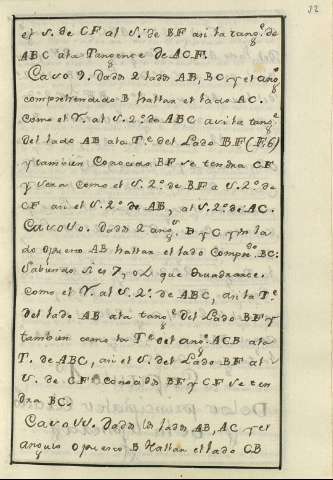 32
el S. de CF al S.º de BF asi la tang.e de
ABC ala Tangente de ACF.
Caso 9. Dados 2 lados AB, BC y el ang.º
comprehendido B hallar el lado AC.
Como el V. al S. 2.º de ABC asi la tang.e
del lado AB ala T.e del Lado BF (F. 6)
y tambien Conocido BF se tendra CF
y sera como el S. 2.º de BF a S. 2.º de
CF asi el S. 2.º de AB, al S. 2.º de AC.
Caso 10. Dados 2 ang.s B y C y un la
do opuesto AB hallar el lado Compre.do BC:
Sabiendo si es 7, o L que Quadrante.
Como el V. al S. 2.º de ABC, asi la T.e
del lado AB ala tang.e del Lado BF y
tambien como la T.e del ang.º ACB ala
T. de ABC, asi el S. del Lado BF al
S. de CF: conocidos BF y CF se ten
dra BC.
Caso 11. Dados los lados AB, AC y el
angulo opuesto B Hallar el lado CB